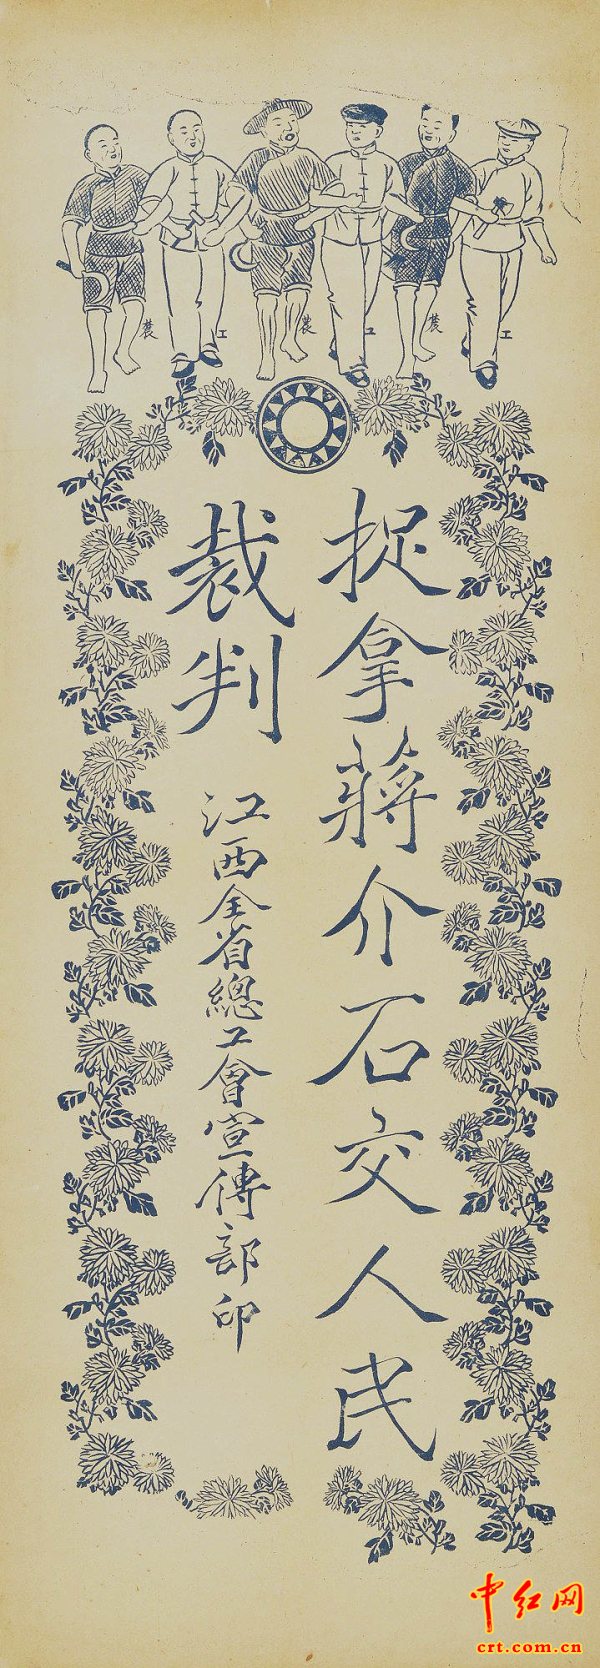 農 工 農 工 農 工
捉拿蔣介石交人民
裁判
江西全省總工會宣傳部印
中红网
crt.com.cn